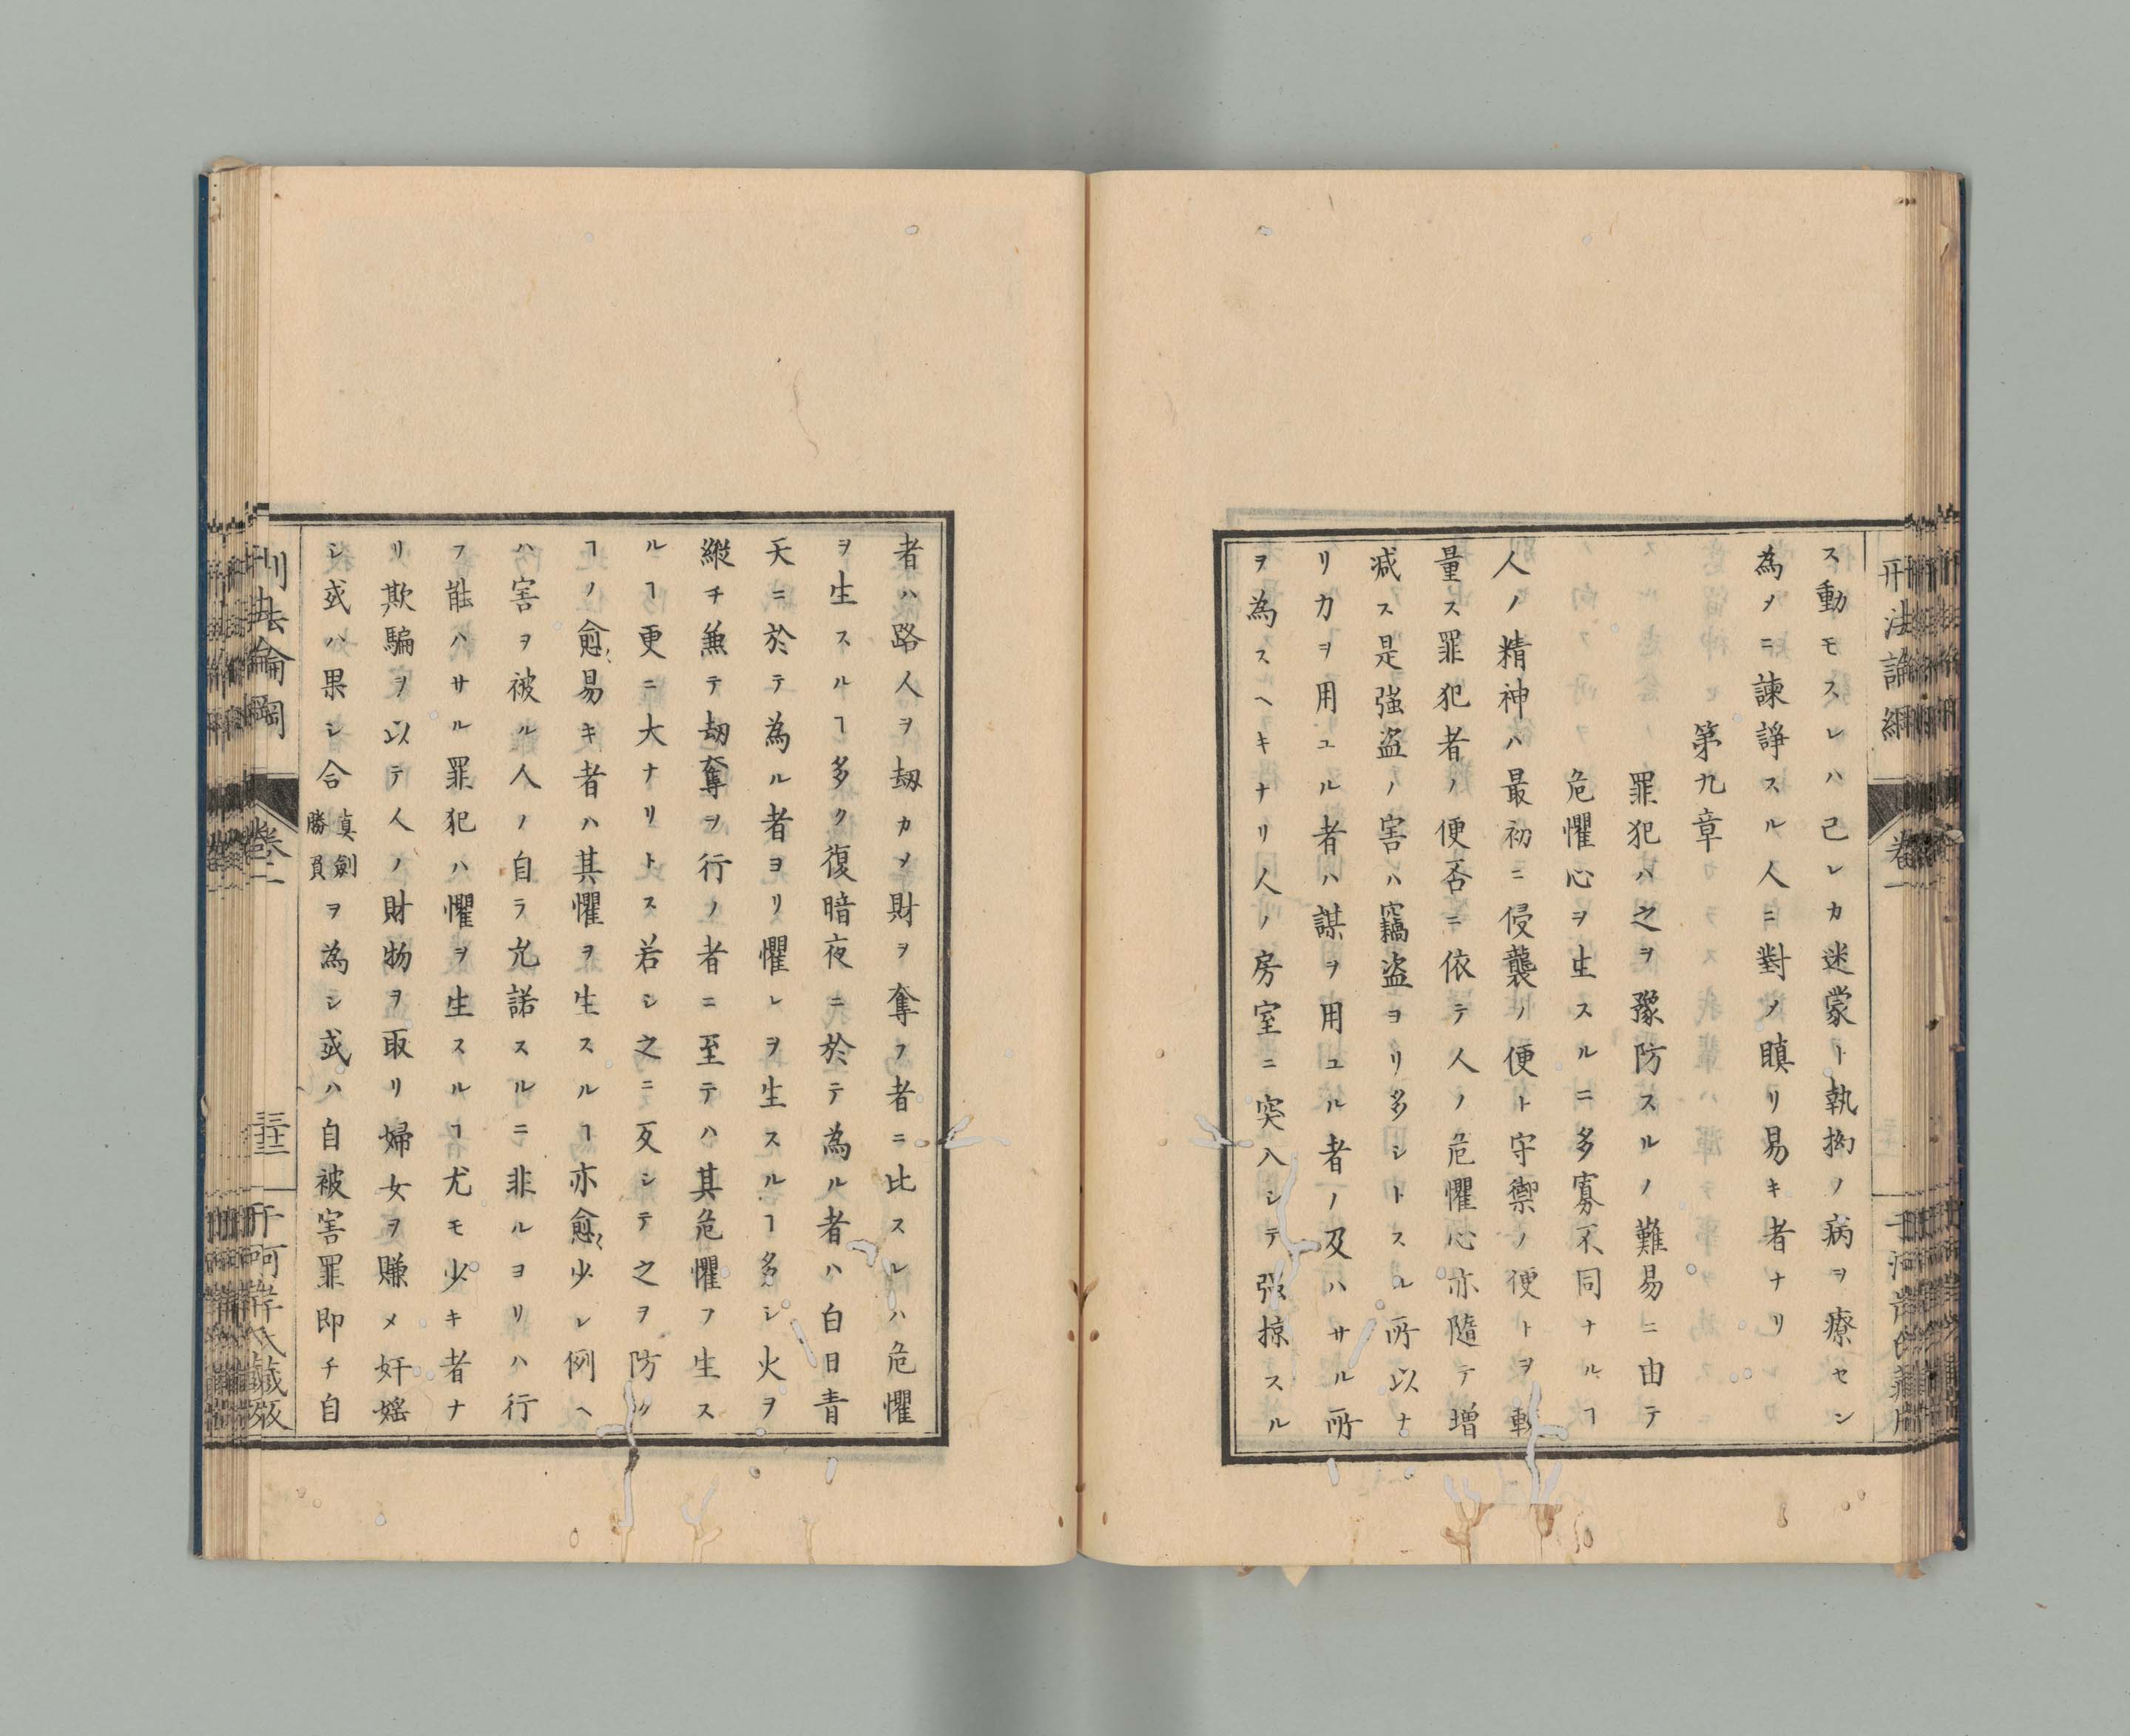 ス動モスレハ己レカ迷蒙ト執拗ノ病ヲ療セン
為メニ諫諍スル人ニ對メ瞋リ易キ者ナリ
第九章
罪犯ハ之ヲ豫防スルノ難易ニ由テ
危懼心ヲ生スルニ多寡不同ナルヿ
人ノ精神ハ最初ニ侵襲ノ便ト守禦ノ便トヲ較
量ス罪犯者ノ便否ニ依テ人ノ危懼心亦隨テ増
減ス是強盗ノ害ハ竊盗ヨリ多シトスル所以ナ
リカヲ用ユル者ハ謀ヲ用ユル者ノ及ハサル所
ヲ為スヘキナリ人ノ房室ニ突入シテ強掠スル
刑法論綱
卷一
者ハ路人ヲ劫カメ財ヲ奪フ者ニ比スレハ危懼
ヲ生スルヿ多ク復暗夜ニ於テ為ル者ハ白日青
天ニ於テ為ル者ヨリ懼レヲ生スルヿ多シ火ヲ
縦チ兼テ劫奪ヲ行ノ者ニ至テハ其危懼フ生ス
ルヿ更ニ大ナリトス若シ之ニ反シテ之ヲ防ク
ヿノ愈易キ者ハ其懼ヲ生スルヿ亦愈少レ例ヘ
ハ害ヲ被ル人ノ自ラ允諾スルニ非ルヨリハ行
フ能ハサル罪犯ハ懼ヲ生スルヿ尤モ少キ者ナ
リ欺騙ヲ以テ人ノ財物ヲ取リ婦女ヲ賺メ奸婬
シ或ハ果シ合真劍勝負ヲ為シ或ハ自被害罪即チ自
刑法論綱
卷二
三十二
于河岸氏藏版